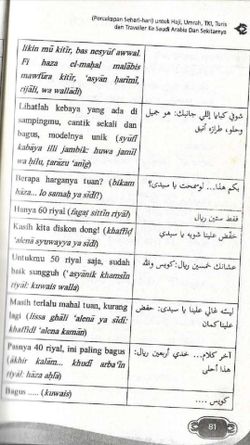 (Percakapan Sehari-hari) untuk Haji, Umrah, TKI, Turis
dan Traveller Ke Saudi Arabia Dan Sekitarnya
likin mū kitīr, bas nesyūf awwal.
Fi haza el-mahal malābis
mawfūra kitīr, 'asyān harīmī,
rijāli, wa wallādi)
Lihatlah kebaya yang ada di
sampingmu, cantik sekali dan
bagus, modelnya unik (syūfi
kabāya illi jambik: huwa jamīl
wa hilu, tarāzu 'anīg)
شوفي كبايا إللي جانبك: هو جميل
وحلو، طرازه أنيق
Berapa harganya tuan? (bikam
hāza... lo samah ya sīdī?)
بكم هذا... لوسمحت يا سيدى؟
Hanya 60 riyal (fagat sittīn riyāl)
فقط ستين ريال
Kasih kita diskon dong! (khaffid
'alenā syuwayya ya sīdī)
خفّض علينا شويه يا سيدي
Untukmu 50 riyal saja, sudah
baik sungguh ('asyānik khamsīn
riyāl: kuwais walla)
عشانك خمسين ريال: كويس والله
Masih terlalu mahal tuan, kurang
lagi (lissa ghāli 'alena ya sīdī:
khaffidl 'alena kamān)
ليسّه غالي علينا يا سيدى: خفض
علينا كمان
Pasnya 40 riyal, ini paling bagus
(ākhir kalām... khudī arba'īn
riyāl: hāza ahla)
آخر كلام... خدي أربعين ريال:
هذا أحلى
Bagus ..... (kuwais)
كويس ....
81